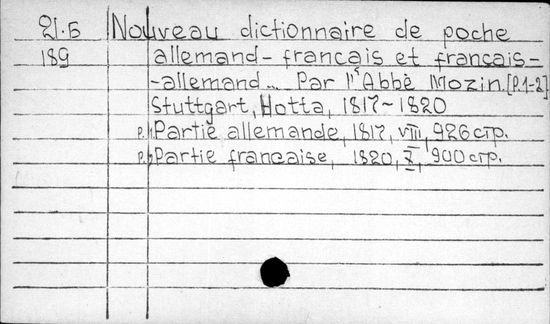 21.5 Nouveau dictionnaire de poche
189 allemand-francais et francais-
-allemand... Par l'Abbè Mozin.[P.1-2]
Stuttgart, Hotta, 1817-1820
P.1, Partie allemande, 1817, VIII, 926 стр.
P.2, Partie francaise, 1820, X, 900 стр.